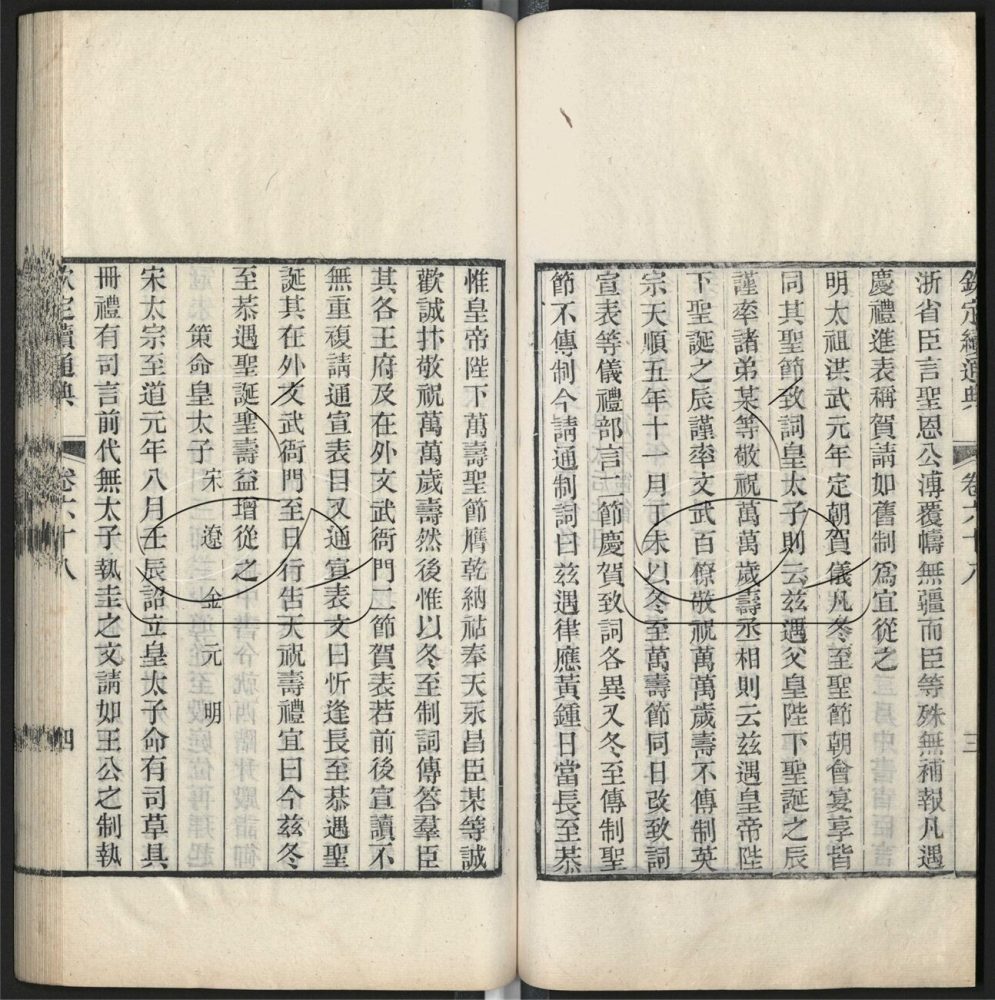 欽定續通典 卷六十八 三
浙省臣言聖恩公溥覆幬無疆而臣等殊無補報凡遇
慶禮進表稱賀請如舊制爲宜從之
明太祖洪武元年定朝賀儀凡冬至聖節朝會宴享皆
同其聖節致詞皇太子則云茲遇父皇陛下聖誕之辰
謹率諸弟某等敬祝萬萬歲壽丞相則云茲遇皇帝陛
下聖誕之辰謹率文武百僚敬祝萬萬歲壽不傳制英
宗天順五年十一月丁未以冬至萬壽節同日改致詞
宣表等儀禮部言二節慶賀致詞各異又冬至傳制聖
節不傳制今請通制詞曰茲遇律應黃鍾日當長至恭
惟皇帝陛下萬壽聖節膺乾納祜奉天永昌臣某等誠
歡誠抃敬祝萬萬歲壽然後惟以冬至制詞傳答羣臣
其各王府及在外文武衙門二節賀表若前後宣讀不
無重複請通宣表目又通宣表文曰忻逢長至恭遇聖
誕其在外文武衙門至日行告天祝壽禮宜曰今茲冬
至恭遇聖誕聖壽益增從之
策命皇太子 宋 遼 金 元 明
宋太宗至道元年八月壬辰詔立皇太子命有司草具
冊禮有司言前代無太子執圭之文請如王公之制執
欽定續通典 卷六十八 四